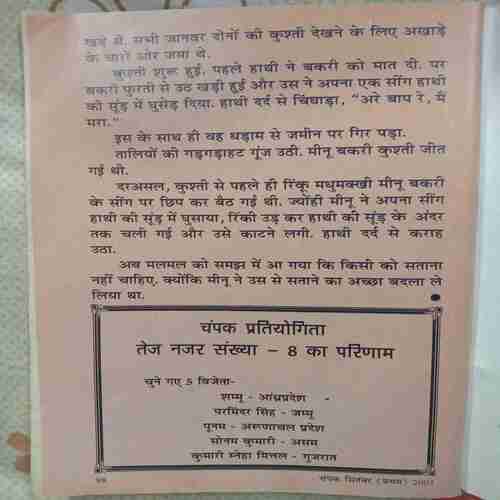 खड़े थे. सभी जानवर दोनों की कुश्ती देखने के लिए अखाड़े
के चारों ओर जमा थे.
कुश्ती शुरू हुई. पहले हाथी ने बकरी को मात दी. पर
बकरी फुरती से उठ खड़ी हुई और उस ने अपना एक सींग हाथी
की सूंड़ में घुसेड़ दिया. हाथी दर्द से चिंघाड़ा, “अरे बाप रे, मैं
मरा.”
इस के साथ ही वह धड़ाम से जमीन पर गिर पड़ा.
तालियों की गड़गड़ाहट गूंज उठी. मीनू बकरी कुश्ती जीत
गई थी.
दरअसल, कुश्ती से पहले ही रिंकू मधुमक्खी मीनू बकरी
के सींग पर छिप कर बैठ गई थी. ज्योंही मीनू ने अपना सींग
हाथी की सूंड़ में घुसाया, रिंकी उड़ कर हाथी की सूंड़ के अंदर
तक चली गई और उसे काटने लगी. हाथी दर्द से कराह
उठा.
अब मलमल को समझ में आ गया कि किसी को सताना
नहीं चाहिए. क्योंकि मीनू ने उस से सताने का अच्छा बदला ले
लिया था.
चंपक प्रतियोगिता
तेज नजर संख्या – 8 का परिणाम
चुने गए 5 विजेता-
शम्मू - आंध्रप्रदेश -
परमिंदर सिंह - जम्मू
पूनम - अरूणाचल प्रदेश
सोनम कुमारी - असम
कुमारी स्नेहा मित्तल - गुजरात
चंपक सितंबर (प्रथम)